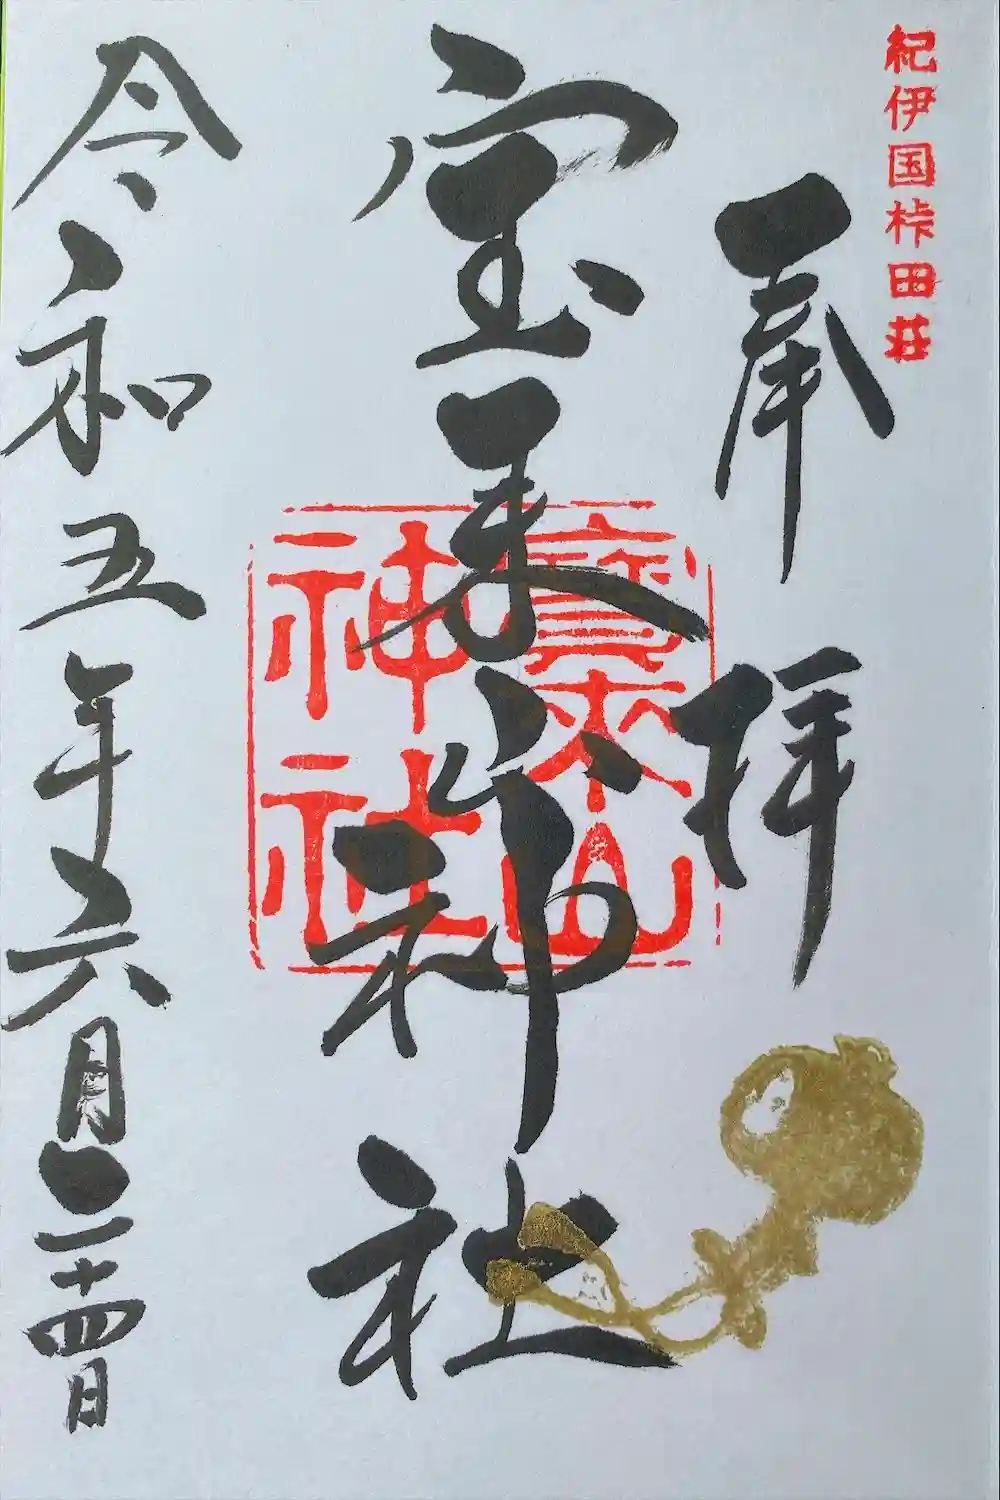 紀伊国桛田荘
奉拝
宝来山神社
寶來山
神社
令和五年六月二十四日